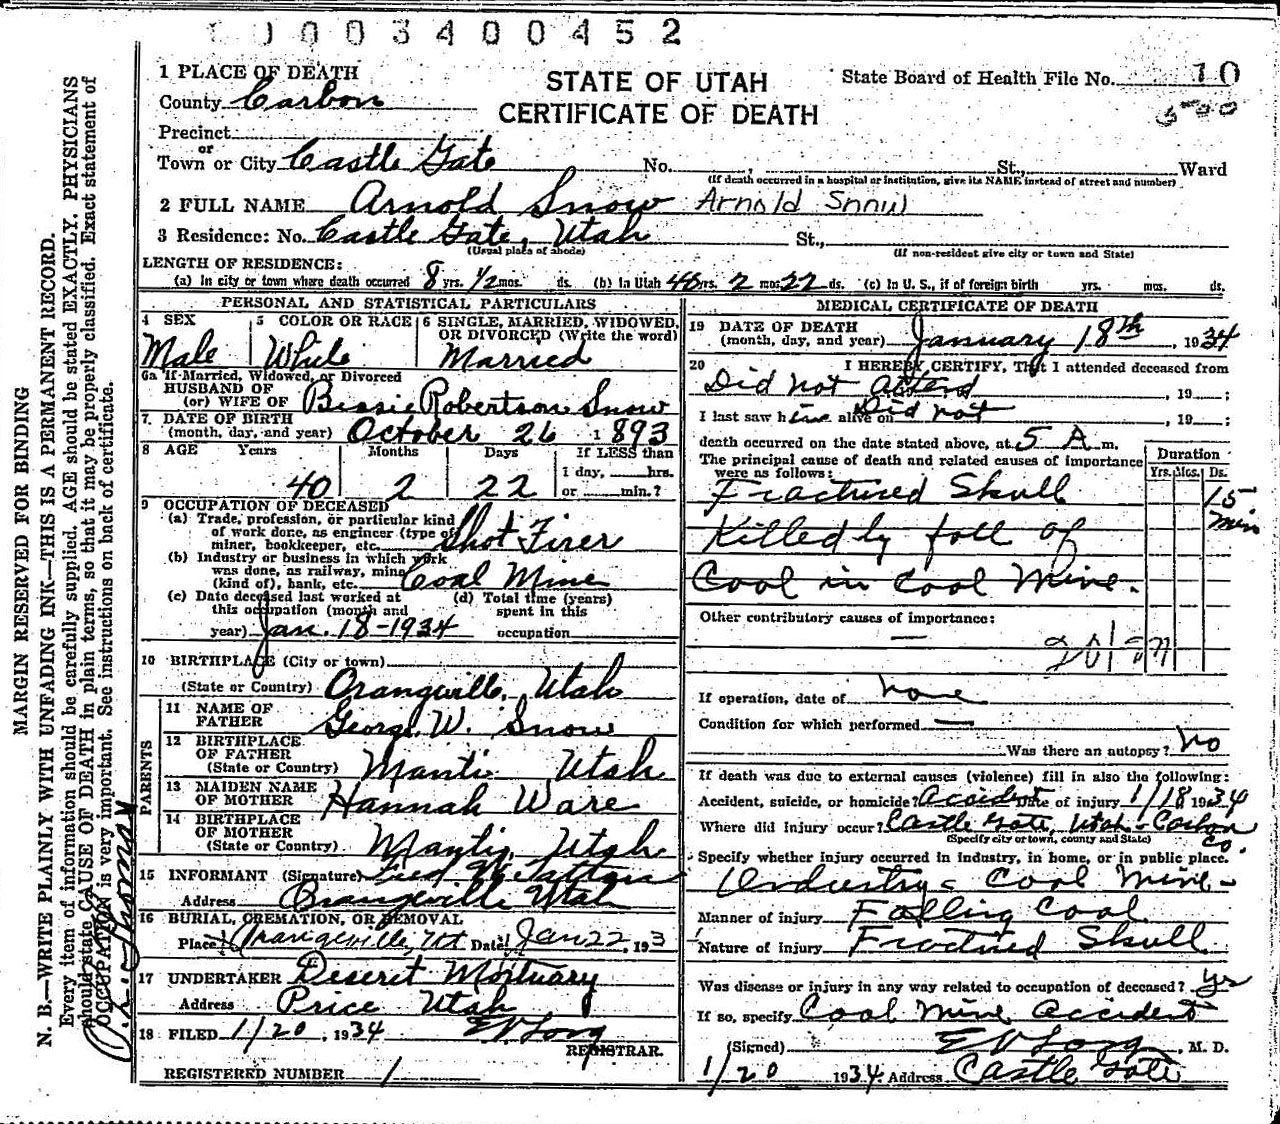 0 0 0 3 4 0 0 4 5 2
STATE OF UTAH
CERTIFICATE OF DEATH
State Board of Health File No. 10
500
1 PLACE OF DEATH
County Carbon
Precinct
or
Town or City Castle Gate No. St., Ward
(If death occurred in a hospital or institution, give its NAME instead of street and number)
2 FULL NAME Arnold Snow Arnold Snow
3 Residence: No. Castle Gate, Utah St.,
(Usual place of abode) (If non-resident give city or town and State)
LENGTH OF RESIDENCE:
(a) In city or town where death occurred 8 yrs. 1/2 mos. ds. (b) In Utah 40 yrs. 2 mos. 22 ds. (c) In U. S., if of foreign birth yrs. mos. ds.
PERSONAL AND STATISTICAL PARTICULARS
4 SEX
Male
5 COLOR OR RACE
White
6 SINGLE, MARRIED, WIDOWED,
OR DIVORCED (Write the word)
Married
6a If Married, Widowed, or Divorced
HUSBAND OF
(or) WIFE OF Bessie Robertson Snow
7. DATE OF BIRTH
(month, day, and year) October 26 1893
8 AGE Years Months Days If LESS than
1 day, hrs.
40 2 22 or min.?
9 OCCUPATION OF DECEASED
(a) Trade, profession, or particular kind
of work done, as engineer (type of
miner, bookkeeper, etc. Shot Firer
(b) Industry or business in which work
was done, as railway, mine
(kind of), bank, etc. Coal Mine
(c) Date deceased last worked at
this occupation (month and
year) Jan. 18-1934
(d) Total time (years)
spent in this
occupation
10 BIRTHPLACE (City or town)
(State or Country) Orangville, Utah
PARENTS
11 NAME OF
FATHER George W. Snow
12 BIRTHPLACE
OF FATHER
(State or Country) Manti Utah
13 MAIDEN NAME
OF MOTHER Hannah Ware
14 BIRTHPLACE
OF MOTHER
(State or Country) Manti, Utah
15 INFORMANT (Signature)
Address Orangeville Utah
16 BURIAL, CREMATION, OR REMOVAL
Place Orangeville, Ut. Date Jan 22, 193
17 UNDERTAKER Deseret Mortuary
Address Price Utah
18 FILED 1/20, 1934 E V Long
REGISTRAR.
REGISTERED NUMBER 1
MEDICAL CERTIFICATE OF DEATH
19 DATE OF DEATH
(month, day, and year) January 18th, 1934
20 I HEREBY CERTIFY, That I attended deceased from
Did not attend, 19 ;
I last saw him alive on Did not, 19 ;
death occurred on the date stated above, at 5 A m.
The principal cause of death and related causes of importance
were as follows:
Duration
Yrs. Mos. Ds.
Fractured Skull 15
min
Killed by fall of
Coal in Coal Mine.
Other contributory causes of importance:
—
If operation, date of none
Condition for which performed —
Was there an autopsy? No
If death was due to external causes (violence) fill in also the following:
Accident, suicide, or homicide? Accident Date of injury 1/18 1934
Where did injury occur? Castle Gate, Utah - Carbon
Co.
(Specify city or town, county and State)
Specify whether injury occurred in industry, in home, or in public place.
Industry - Coal Mine -
Manner of injury Falling Coal
Nature of injury Fractured Skull
Was disease or injury in any way related to occupation of deceased? Yes
If so, specify Coal Mine Accident
(Signed) E V Long, M. D.
1/20 1934. Address Castle Gate
MARGIN RESERVED FOR BINDING
N. B.—WRITE PLAINLY WITH UNFADING INK—THIS IS A PERMANENT RECORD.
Every item of information should be carefully supplied. AGE should be stated EXACTLY. PHYSICIANS
should state CAUSE OF DEATH in plain terms, so that it may be properly classified. Exact statement of
OCCUPATION is very important. See instructions on back of certificate.